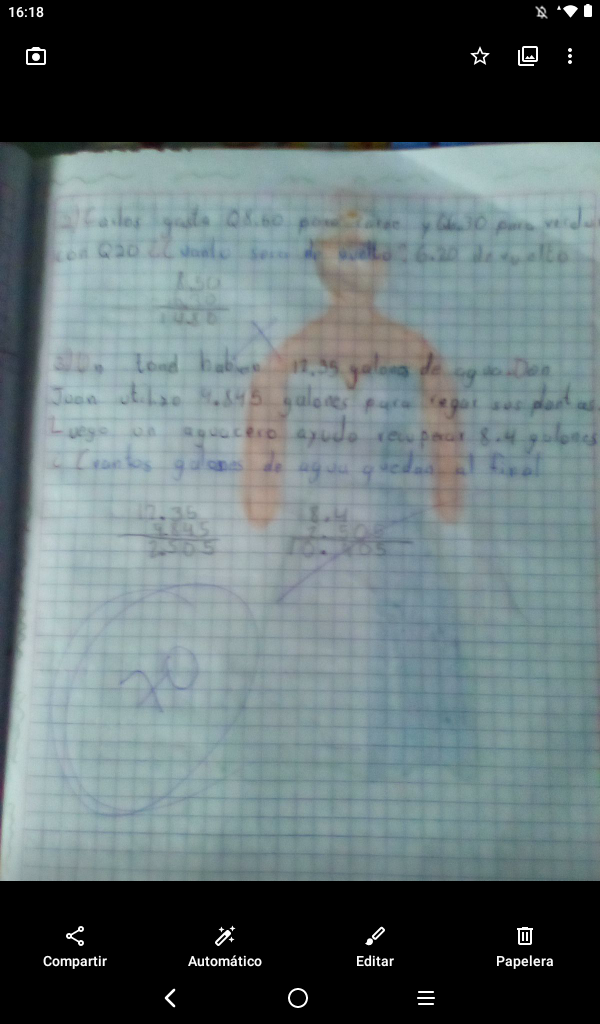 16:18
gasta Q8.50 para carne y Q6.30 para
con Q20 ¿Cuanto sera de vuelto? 6.20 de vuelto
8.50
habian 12.35 galones de agua. Don
Juan utilizo 9.845 galones para regar sus plantas.
Luego un aguacero ayudo recuperar 8.4 galones
¿Cuantos galones de agua quedan al final
12.35 8.4
9.845
2.505
70
Compartir Automático Editar Papelera